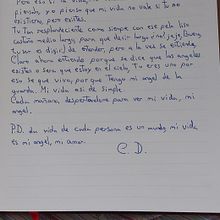 Pero eso si la vida,
pienso, y o pienso que mi vida no vale si tu no
existiera, pero existes.
Tu tan resplandeciente como siempre con ese pelo liso
castaño medio largo, para que decir largo o no! jeje, Bueno
tu ser es dificil de entender, pero a la vez se entiende,
Claro ahora entiendo porque se dice que los angeles
existen o seria que estoy en el cielo, Tu eres uno por
eso se que vivo, por que tengo mi angel de la
guarda. Mi vida asi de simple.
Cada mañana, despertandome para ver mi vida, mi
angel.
P.D. La vida de cada persona es un mundo, mi vida
es mi angel, mi amor.
C. D.